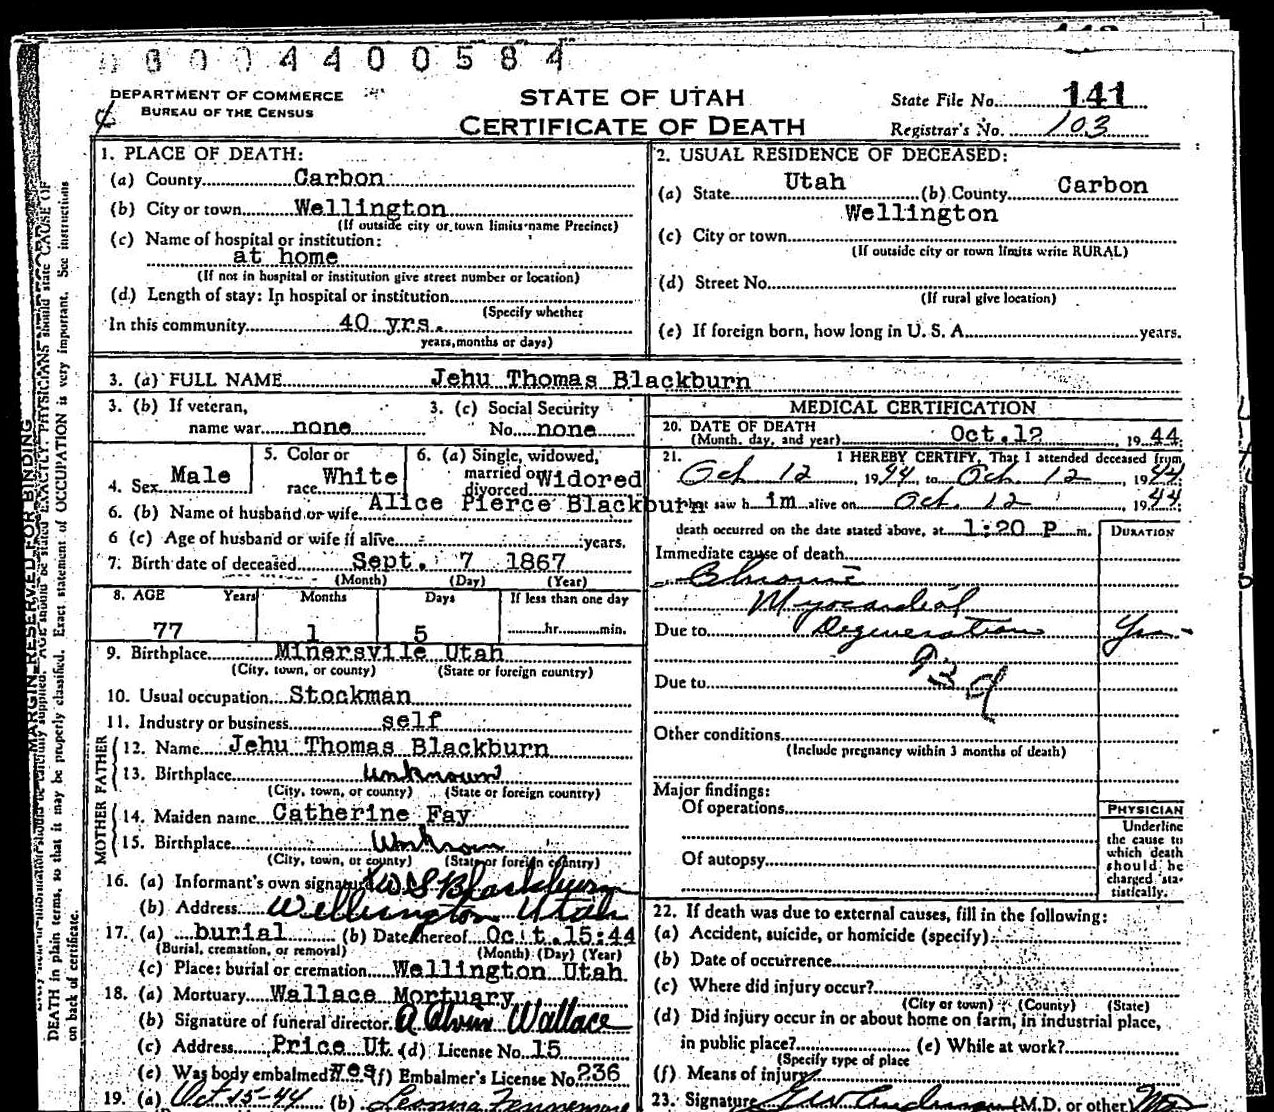 0 0 0 0 4 4 0 0 5 8 4
DEPARTMENT OF COMMERCE
BUREAU OF THE CENSUS
STATE OF UTAH
CERTIFICATE OF DEATH
State File No. 141
Registrar's No. 103
MARGIN RESERVED FOR BINDING
AGE should be stated EXACTLY. PHYSICIANS should state CAUSE OF
DEATH in plain terms, so that it may be properly classified. Exact statement of OCCUPATION is very important. See instructions
on back of certificate.
1. PLACE OF DEATH:
(a) County Carbon
(b) City or town Wellington
(If outside city or town limits name Precinct)
(c) Name of hospital or institution:
at home
(If not in hospital or institution give street number or location)
(d) Length of stay: In hospital or institution
(Specify whether
In this community 40 yrs.
years, months or days)
2. USUAL RESIDENCE OF DECEASED:
(a) State Utah (b) County Carbon
Wellington
(c) City or town
(If outside city or town limits write RURAL)
(d) Street No.
(If rural give location)
(e) If foreign born, how long in U. S. A. years.
3. (a) FULL NAME Jehu Thomas Blackburn
3. (b) If veteran, name war none
3. (c) Social Security No. none
4. Sex Male
5. Color or race White
6. (a) Single, widowed, married or divorced Widored
6. (b) Name of husband or wife Alice Pierce Blackburn
6 (c) Age of husband or wife if alive years.
7. Birth date of deceased Sept. 7 1867
(Month) (Day) (Year)
8. AGE Years Months Days If less than one day
77 1 5 hr. min.
9. Birthplace Minersvile Utah
(City, town, or county) (State or foreign country)
10. Usual occupation Stockman
11. Industry or business self
FATHER
12. Name Jehu Thomas Blackburn
13. Birthplace unknown
(City, town, or county) (State or foreign country)
MOTHER
14. Maiden name Catherine Fay
15. Birthplace Unknown
(City, town, or county) (State or foreign country)
16. (a) Informant's own signature W S Blackburn
(b) Address Wellington Utah
17. (a) burial (b) Date thereof Oct. 15:44
(Burial, cremation, or removal) (Month) (Day) (Year)
(c) Place: burial or cremation Wellington Utah
18. (a) Mortuary Wallace Mortuary
(b) Signature of funeral director. A Elvin Wallace
(c) Address Price Ut (d) License No. 15
(e) Was body embalmed? yes (f) Embalmer's License No. 236
19. (a) Oct 15-44 (b) Leonna Fennemore
MEDICAL CERTIFICATION
20. DATE OF DEATH
(Month, day, and year) Oct. 12, 1944
21. I HEREBY CERTIFY, That I attended deceased from
Oct 12, 1944, to Oct 12, 1944
that saw him alive on Oct. 12 1944
death occurred on the date stated above, at 1:20 P. m.
DURATION
Immediate cause of death
Chronic
Myocardial
Due to Degeneration Yrs-
93d
Due to
Other conditions
(Include pregnancy within 3 months of death)
Major findings:
Of operations
Of autopsy
PHYSICIAN
Underline
the cause to
which death
should be
charged sta-
tistically.
22. If death was due to external causes, fill in the following:
(a) Accident, suicide, or homicide (specify)
(b) Date of occurrence
(c) Where did injury occur?
(City or town) (County) (State)
(d) Did injury occur in or about home on farm, in industrial place,
in public place? (e) While at work?
(Specify type of place
(f) Means of injury
23. Signature (M.D. or other)